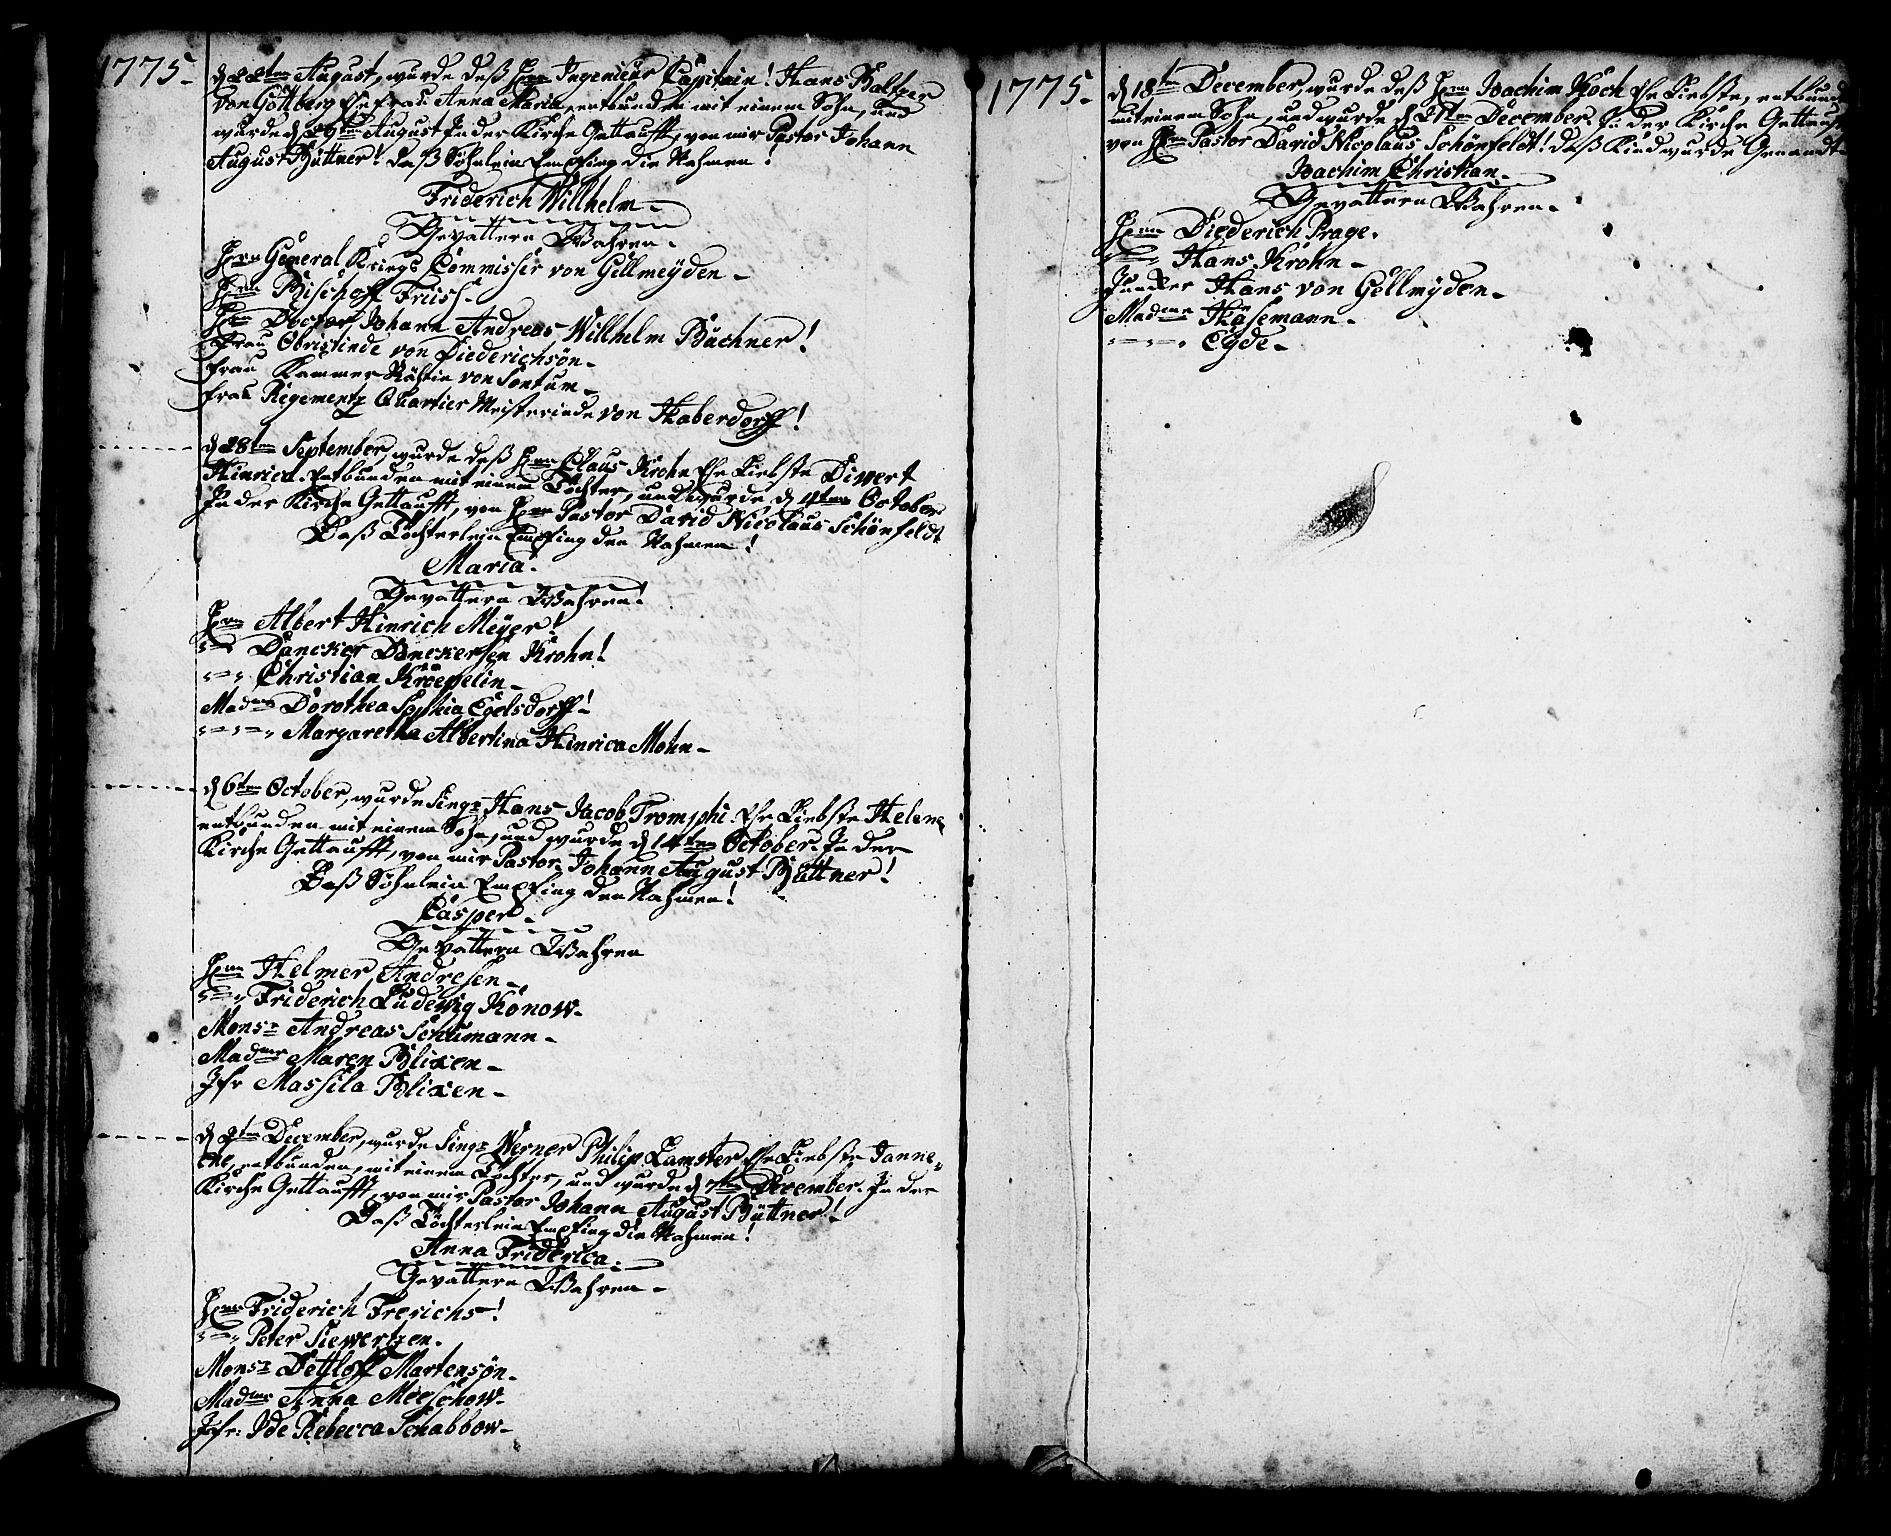 1775.
d 22ten August, wurde deß Hrn Ingenieur Capitain! Hans Baltzer
von Göttberg Ehe frau Anna Maria, entbunden mit einem Sohn, und
wurde d 29ten August In der Kirche Gettaufft, von mir Pastor Johann
August Büttner! daß Söhnlein Empfing die Nahmen!
Friderich Willhelm
Gevattern Wahren.
Hrn General Kriegs Commissër von Gellmeÿden
Hrn Bischoff Friis.
Hrn Doctor Johann Andreas Willhelm Büchner!
Frau Obristinde von Diederichsön
frau Kammer Räthin von Sontum
frau Regementz Quartier Meisterinde von Haberdorff!
d 28ten September, wurde deß Hrn Claus Krohn Ehe Liebste Diwert
Hinrica. Entbunden mit einem Tochter, und wurde d 4ten October
In der Kirche Gettaufft, von Hrn Pastor David Nicolaus Schönfeldt
Daß Töchterlein Empfing den Nahmen!
Maria.
Gevattern Wahren!
Hrn Albert Hinrich Meÿer!
Dancker Danckersen Krohn!
Christian Kröepelin
Madme Dorothea Sophia Egelsdorff!
Margaretha Albertina Hinrica Mohn
d 6ten October, wurde Singr Hans Jacob Tromphi Ehe Liebste Helena
entbunden mit einem Sohn, und wurde d 14ten October. In der
Kirche Gettaufft, von mir Pastor Johann August Büttner!
Daß Söhnlein Empfing den Nahmen!
Casper
Gevattern Wahren
Hrn Helmer Andresen
Friderich Ludewig Konow
Monsr Andreas Schumann
Madme Maren Blixen
Jfr Massila Blixen
d 2ten December, wurde Singr Werner Philip Lamster, Ehe Liebste Janne-
cke, entbunden, mit einem Tochter, und wurde d 7ten December. In der
Kirche Gettaufft, von mir Pastor Johann August Büttner!
Daß Töchterlein Empfing die Nahmen!
Anna Friderica.
Gevattern Wahren
Hrn Friderich Frerichs!
Peter Siewertzen.
Monsr Dettloff Martensön.
Madme Anna Meeschow
Jfr: Ide Rebecca Schabbow
1775.
d 18ten December, wurde deß Hrn Joachim Koch Ehe Liebste, entbunden
mit einem Sohn, und wurde d 21ten December. In der Kirche Gettaufft
von Hrn Pastor David Nicolaus Schönfeldt! daß Kind wurde Genandt
Joachim Christian
Gevattern Wahren
Hrn Diederich Prage.
Hans Krohn
Juncker Hans von Gellmÿden
Madme Hasemann
Egde